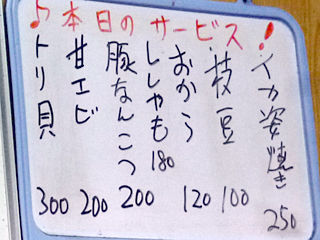 ♪本日のサービス!
イカ姿焼き 250
枝豆 100
おから 120
ししゃも 180
豚なんこつ 200
甘エビ 200
トリ貝 300